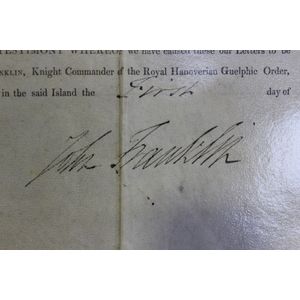 TESTIMONY WHEREOF, we have caused these our Letters to be
NKLIN, Knight Commander of the Royal Hanoverian Guelphic Order,
in the said Island the First day of
John Franklin